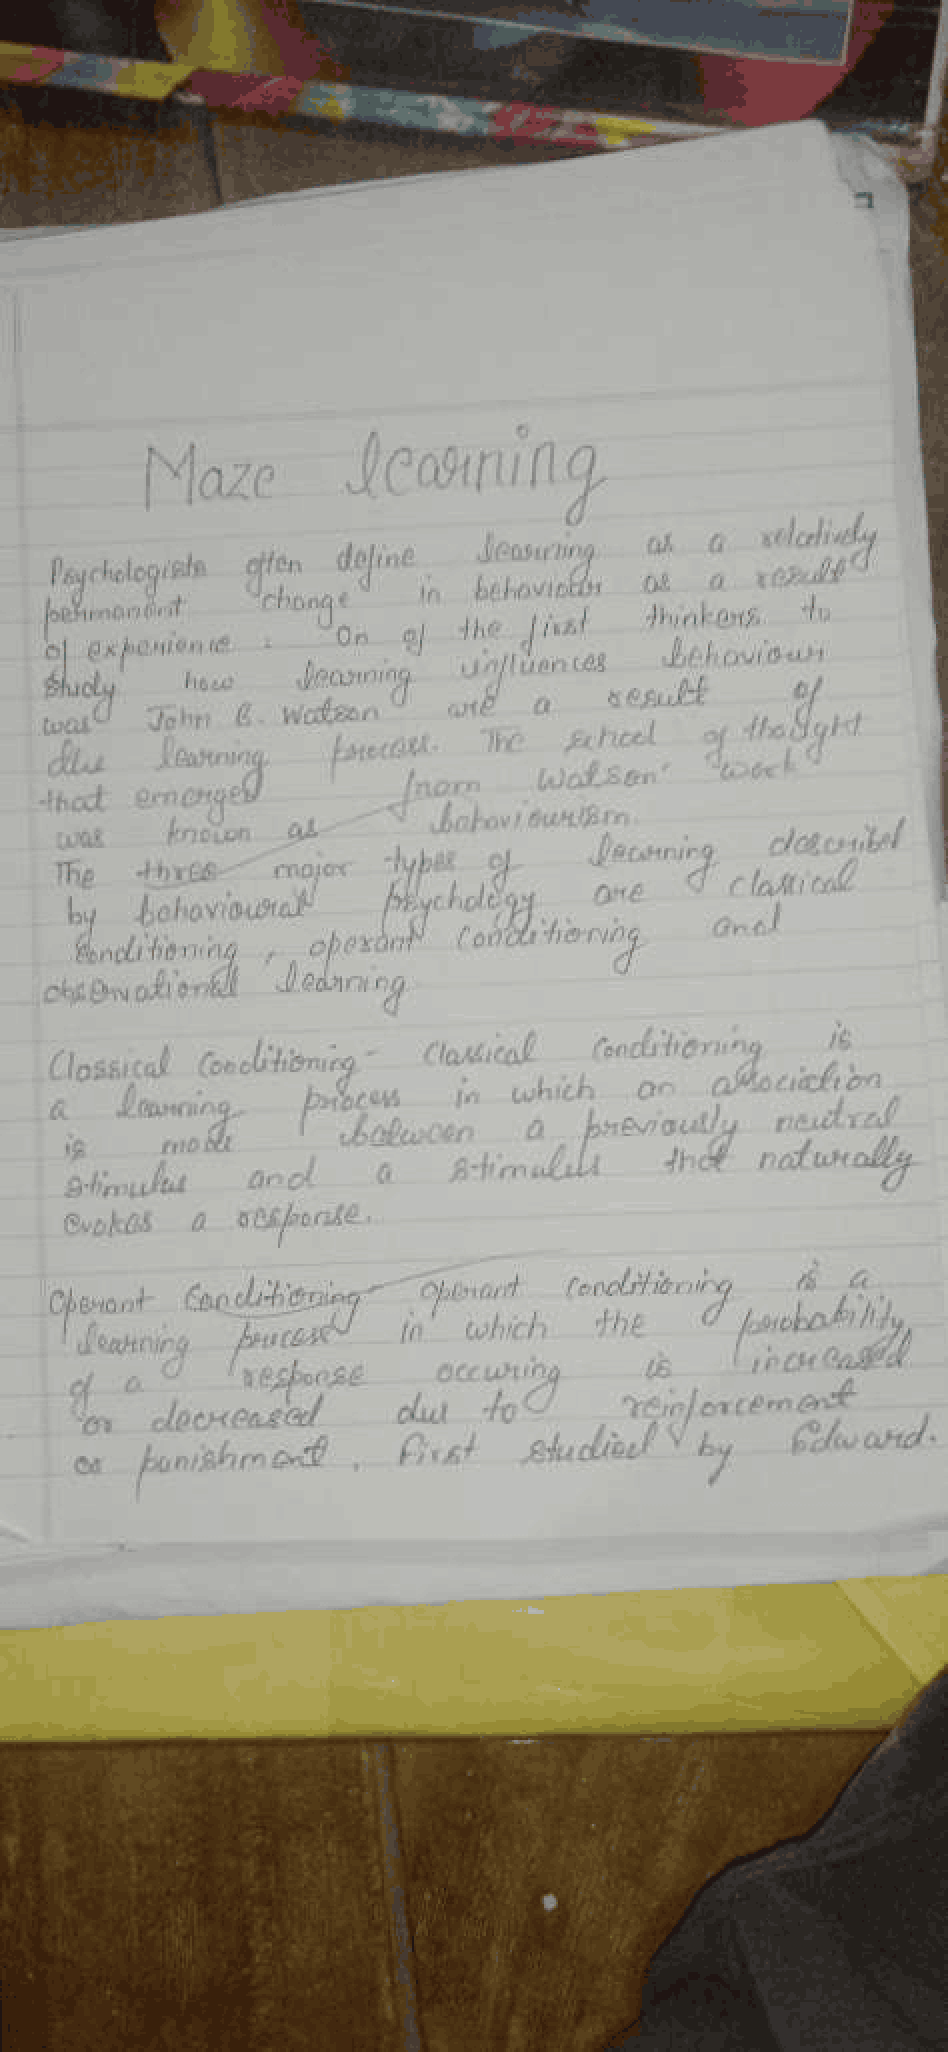 Maze learning
Psychologists often define learning as a relatively
permanent change in behaviour as a result
of experience. On of the first thinkers to
study how learning influences behaviour
was John B. Watson are a result of
the learning process. The school of thought
that emerged from Watson' work
was known as behaviourism.
The three major types of learning described
by behavioural psychology are classical
Conditioning, operant conditioning and
observational learning
Classical Conditioning - Classical conditioning is
a learning process in which an association
is made between a previously neutral
stimulus and a stimulus that naturally
evokes a response.
Operant Conditioning operant conditioning is a
learning process in which the probability
of a response occuring is increased
or decreased due to reinforcement
or punishment. First studied by Edward.